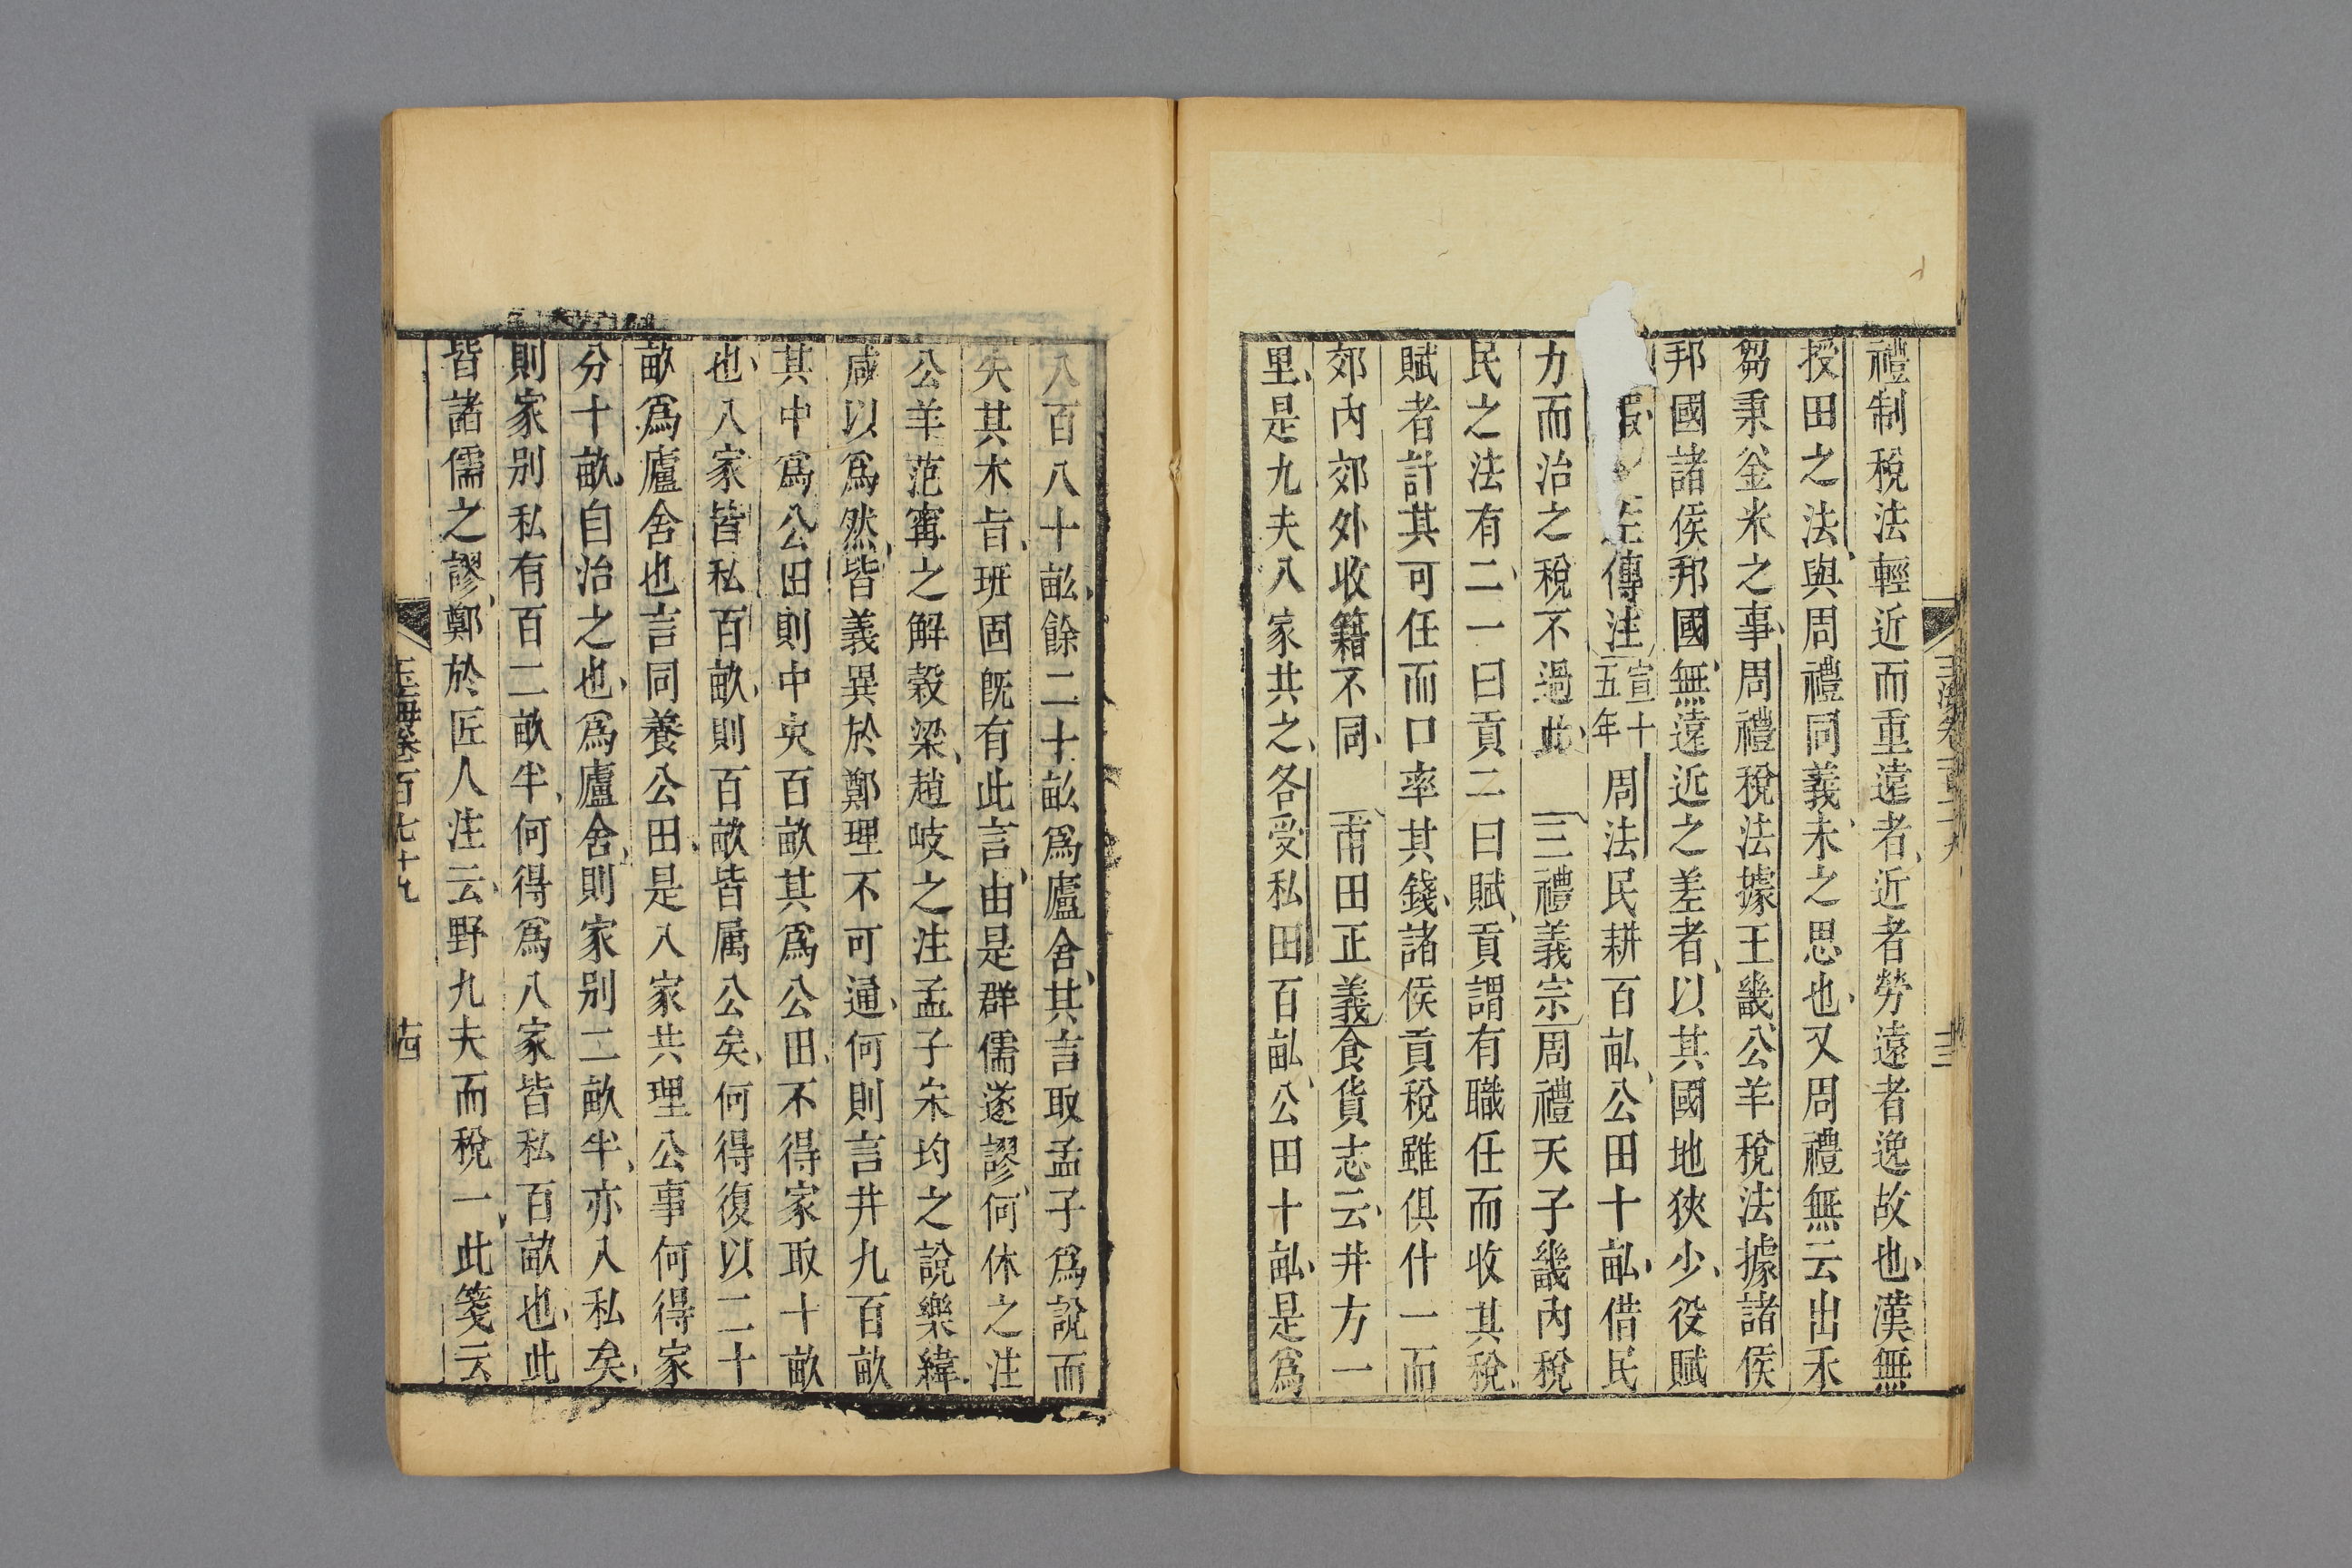 禮制稅法輕近而重遠者近者勞遠者逸故也漢無
授田之法與周禮同義未之思也又周禮無云出禾
芻秉釜米之事周禮稅法據王畿公羊稅法據諸侯
邦國諸侯邦國無遠近之差者以其國地狹少役賦
傳注宣十五年周法民耕百畝公田十畝借民
力而治之稅不過此 三禮義宗周禮天子畿內稅
民之法有二一曰貢二曰賦貢謂有職任而收其稅
賦者計其可任而口率其錢諸侯貢稅雖俱什一而
郊內郊外收籍不同 甫田正義食貨志云井方一
里是九夫八家共之各受私田百畝公田十畝是爲
八百八十畝餘二十畝爲廬舍其言取孟子爲說而
失其本旨班固旣有此言由是群儒遂謬何休之注
公羊范寗之解穀梁趙岐之注孟子宋均之說樂緯
咸以爲然皆義異於鄭理不可通何則言井九百畝
其中爲公田則中央百畝其爲公田不得家取十畝
也八家皆私百畝則百畝皆属公矣何得復以二十
畝爲廬舍也言同養公田是八家共理公事何得家
分十畝自治之也爲廬舍則家别二畝半亦入私矣
則家别私有百二畝半何得爲八家皆私百畝也此
皆諸儒之謬鄭於匠人注云野九夫而稅一此箋云
玉海卷百七十九
十四